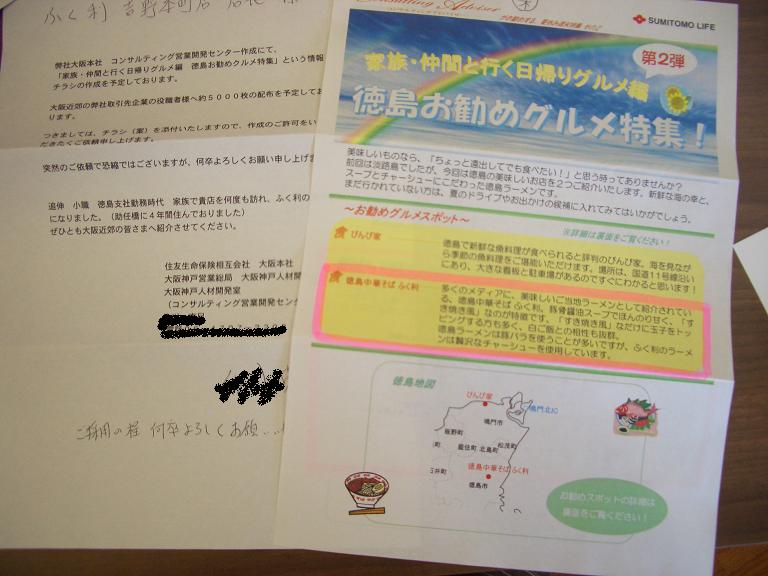 ふく利 吉野本町店 店長
弊社大阪本社 コンサルティング営業開発センター作成にて、
「家族・仲間と行く日帰りグルメ編 徳島お勧めグルメ特集」という情報
チラシの作成を予定しております。
大阪近郊の弊社取引先企業の役職者様へ約5000枚の配布を予定してお
ります。
つきましては、チラシ(案)を添付いたしますので、作成のご許可をい
ただきたくご依頼申し上げます。
突然のご依頼で恐縮ではございますが、何卒よろしくお願い申し上げま
追伸 小職 徳島支社勤務時代 家族で貴店を何度も訪れ、ふく利の
になりました。(助任橋に4年間住んでおりました)
ぜひとも大阪近郊の皆さまへ紹介させてください。
住友生命保険相互会社 大阪本社
大阪神戸営業総局 大阪神戸人材開
大阪神戸人材開発室
(コンサルティング営業開発セン
ご採用の程 何卒よろしくお願
Consulting Adviser
SUMITOMO LIFE
第2弾
家族・仲間と行く日帰りグルメ編
徳島お勧めグルメ特集!
美味しいものなら、「ちょっと遠出してでも食べたい!」と思う時ってありませんか?
前回は淡路島でしたが、今回は徳島の美味しいお店を2つご紹介いたします。新鮮な海の幸と、
スープとチャーシューにこだわった徳島ラーメンです。
まだ行かれていない方は、夏のドライブやお出かけの候補に入れてみてはいかがでしょう。
~お勧めグルメスポット~
※詳細は裏面をご覧ください!
食 びんび家
徳島で新鮮な魚料理が食べられると評判のびんび家。海を見なが
ら季節の魚料理をご堪能いただけます。場所は、国道11号線沿い
にあり、大きな看板と駐車場があるのですぐにわかると思います!
食 徳島中華そば ふく利
多くのメディアに、美味しいご当地ラーメンとして紹介されてい
る、徳島中華そば ふく利。豚骨醤油スープでほんのり甘く、「す
き焼き風」なのが特徴です。「すき焼き風」なだけに玉子をトッ
ピングする方も多く、白ご飯との相性も抜群。
徳島ラーメンは豚バラを使うことが多いですが、ふく利のラーメ
ンは贅沢なチャーシューを使用しています。
徳島地図
びんび家
鳴門北IC
鳴門市
板野町
藍住町
北島町
松茂町
石井町
徳島中華そば ふく利
徳島市
お勧めスポットの詳細は
裏面をご覧ください!